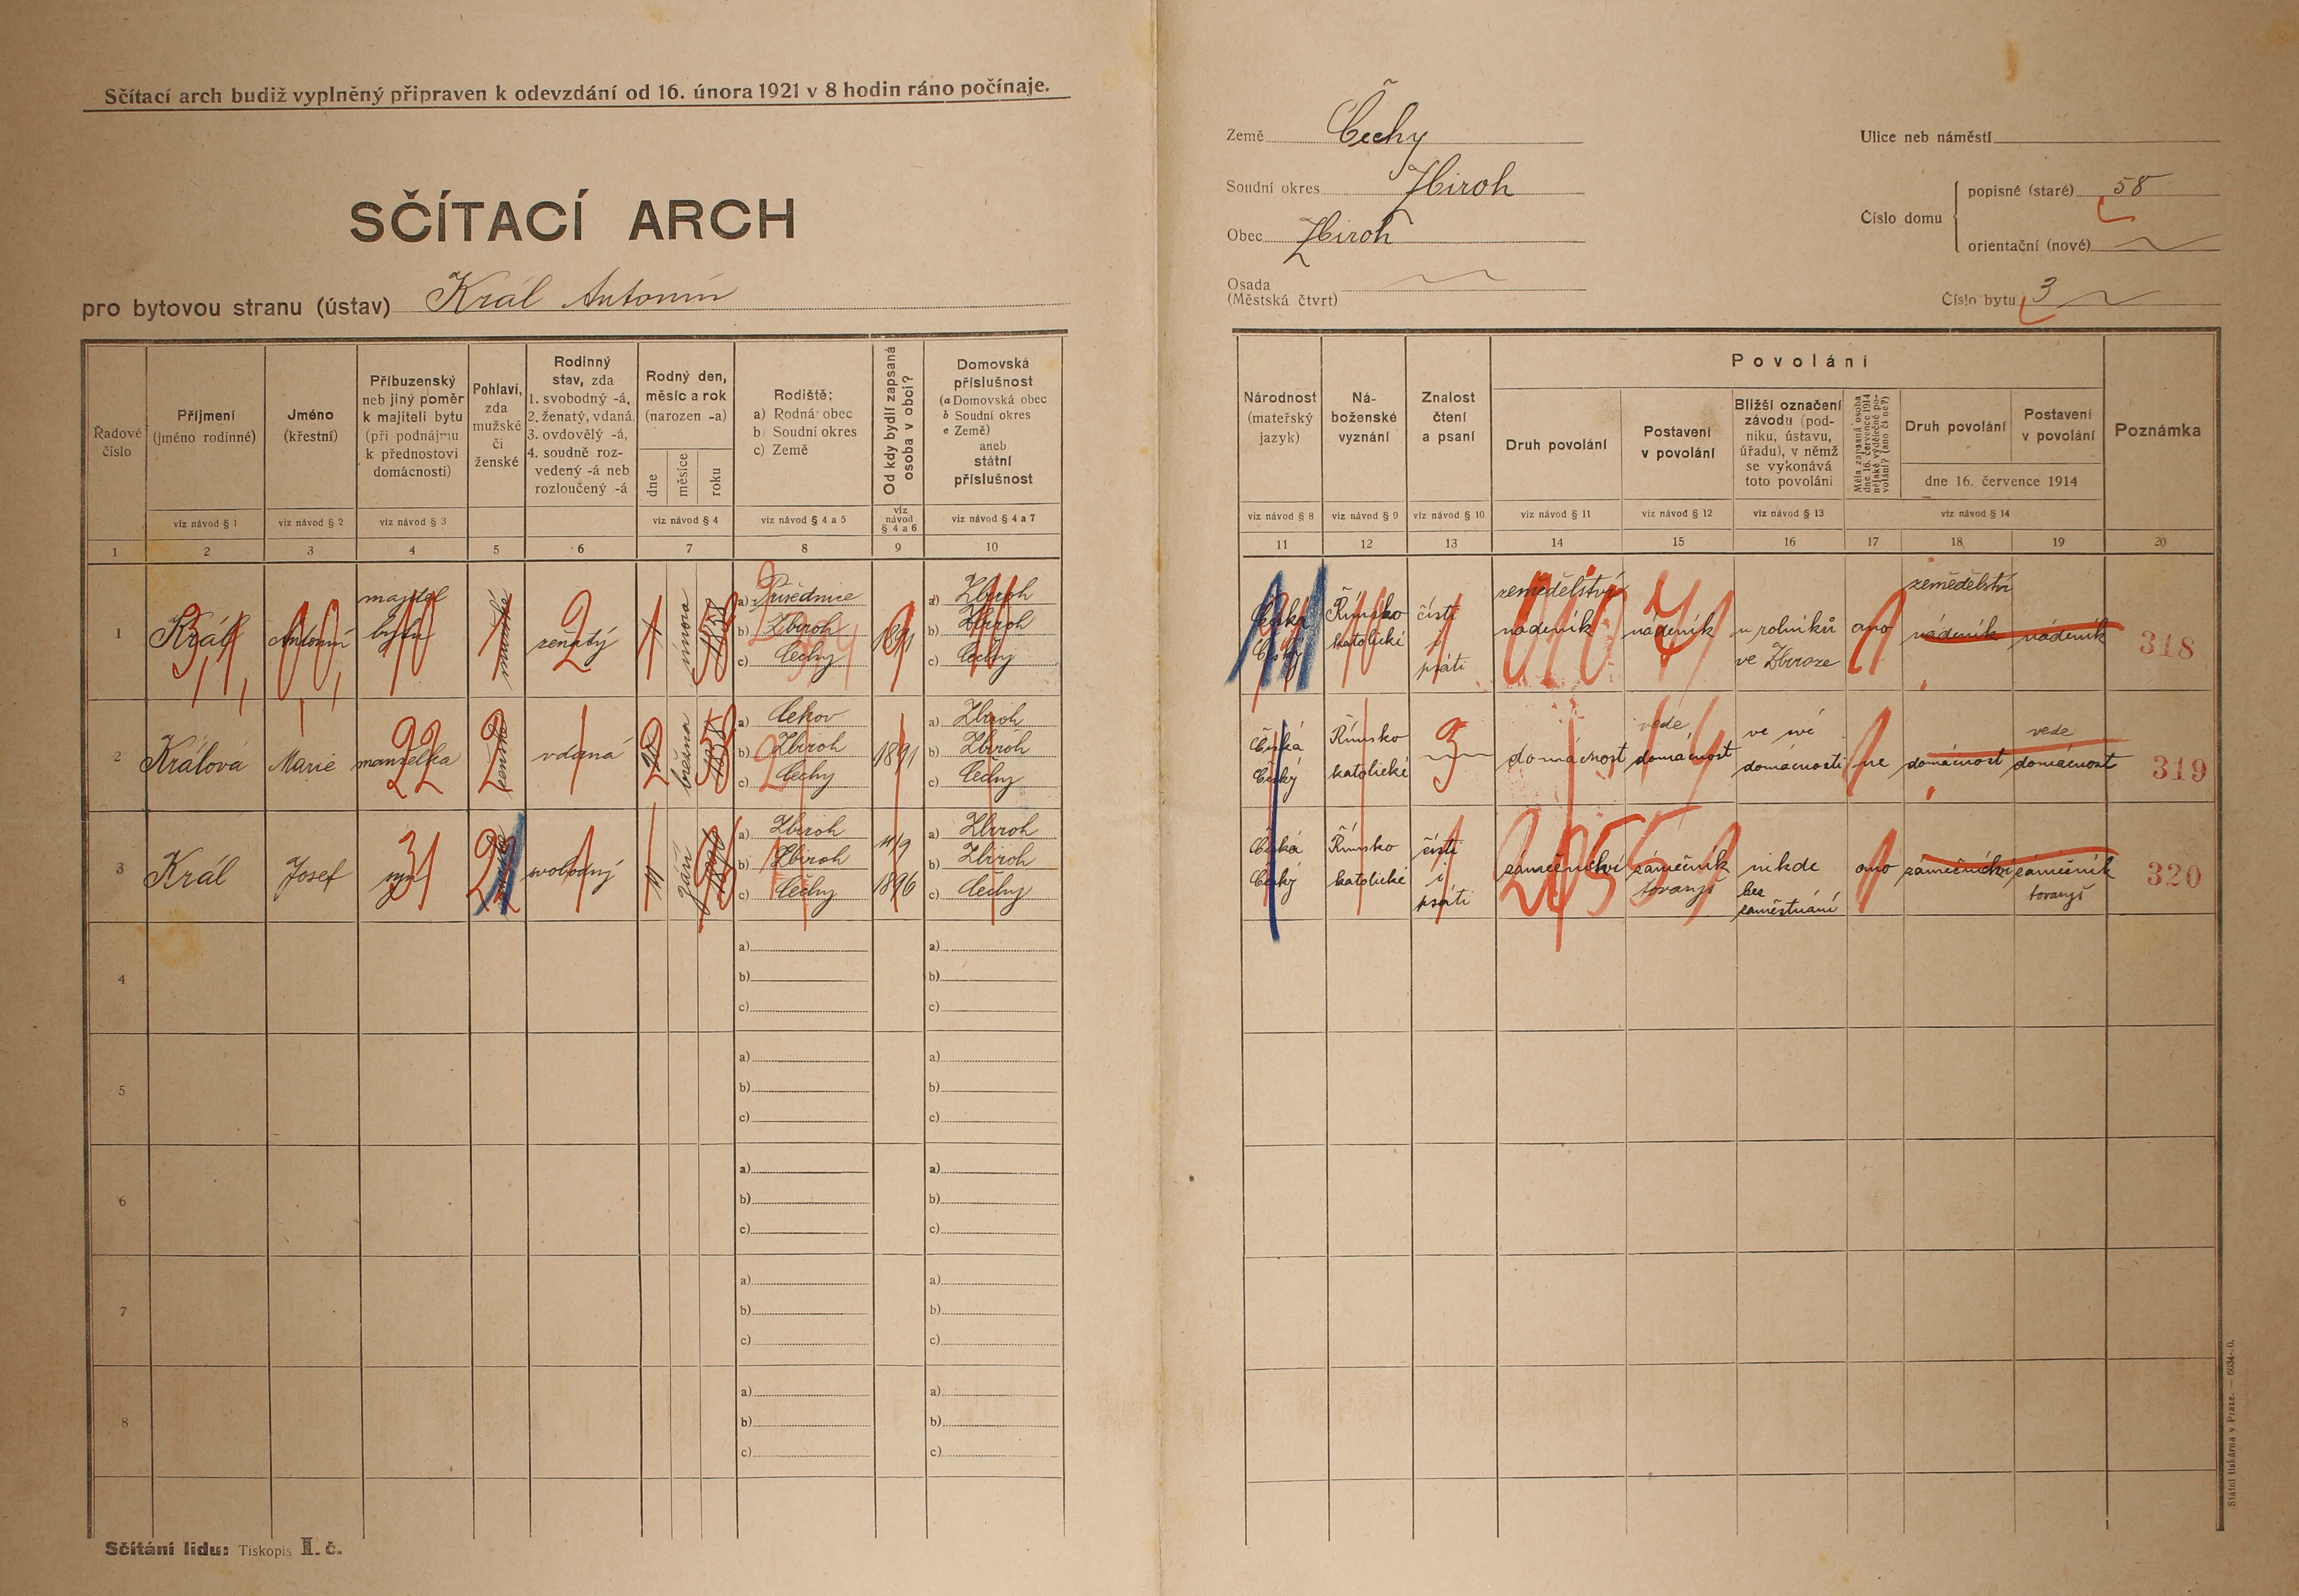 Sčítací arch budiž vyplněný připraven k odevzdání od 16. února 1921 v 8 hodin ráno počínaje.
SČÍTACÍ ARCH
pro bytovou stranu (ústav) Král Antonín
Země Čechy
Soudní okres Zbiroh
Obec Zbiroh
Osada
(Městská čtvrt)
Ulice neb náměstí
Číslo domu
popisné (staré) 58
orientační (nové)
Číslo bytu 3
Řadové číslo
Příjmení
(jméno rodinné)
viz návod § 1
Jméno
(křestní)
viz návod § 2
Příbuzenský
neb jiný poměr
k majiteli bytu
(při podnájmu
k přednostovi
domácnosti)
viz návod § 3
Pohlaví,
zda
mužské
či
ženské
Rodinný
stav, zda
1. svobodný -á,
2. ženatý, vdaná,
3. ovdovělý -á,
4. soudně roz-
vedený -á neb
rozloučený -á
Rodný den,
měsíc a rok
(narozen -a)
dne
měsíce
roku
viz návod § 4
Rodiště:
a) Rodná obec
b) Soudní okres
c) Země
viz návod § 4 a 5
Od kdy bydlí zapsaná
osoba v obci?
viz
návod
§ 4 a 6
Domovská
příslušnost
(a Domovská obec
b Soudní okres
c Země)
aneb
státní
příslušnost
viz návod § 4 a 7
Národnost
(mateřský
jazyk)
viz návod § 8
Ná-
boženské
vyznání
viz návod § 9
Znalost
čtení
a psaní
viz návod § 10
Povolání
Druh povolání
viz návod § 11
Postavení
v povolání
viz návod § 12
Bližší označení
závodu (pod-
niku, ústavu,
úřadu), v němž
se vykonává
toto povolání
viz návod § 13
Měla zapsaná osoba
dne 16. července 1914
nějaké výdělečné po-
volání? (ano či ne?)
Druh povolání
Postavení
v povolání
dne 16. července 1914
viz návod § 14
Poznámka
1 2 3 4 5 6 7 8 9 10 11 12 13 14 15 16 17 18 19 20
1
Král
Antonín
majitel
bytu
mužské
ženatý
února
1838
a)
b) Zbiroh
c) Čechy
1891
a) Zbiroh
b) Zbiroh
c) Čechy
Česká
Český
Římsko
katolické
čísti
i
psáti
zemědělství
nádeník
nádeník
u rolníků
ve Zbiroze
ano
zemědělství
nádeník
nádeník
318
2
Králová
Marie
manželka
ženské
vdaná
března
a) Cekov
b) Zbiroh
c) Čechy
1891
a) Zbiroh
b) Zbiroh
c) Čechy
Česká
Český
Římsko
katolické
domácnost
vede
domácnost
ve své
domácnosti
ne
domácnost
vede
domácnost
319
3
Král
Josef
syn
mužské
svobodný
11
září
1896
a) Zbiroh
b) Zbiroh
c) Čechy
11/9
1896
a) Zbiroh
b) Zbiroh
c) Čechy
Česká
Český
Římsko
katolické
čísti
i
psáti
zámečnictví
zámečník
tovaryš
nikde
bez
zaměstnání
ano
zámečnictví
zámečník
tovaryš
320
4
a)
b)
c)
a)
b)
c)
5
a)
b)
c)
a)
b)
c)
6
a)
b)
c)
a)
b)
c)
7
a)
b)
c)
a)
b)
c)
8
a)
b)
c)
a)
b)
c)
Sčítání lidu: Tiskopis I. č.
Státní tiskárna v Praze. — 6034-.0.